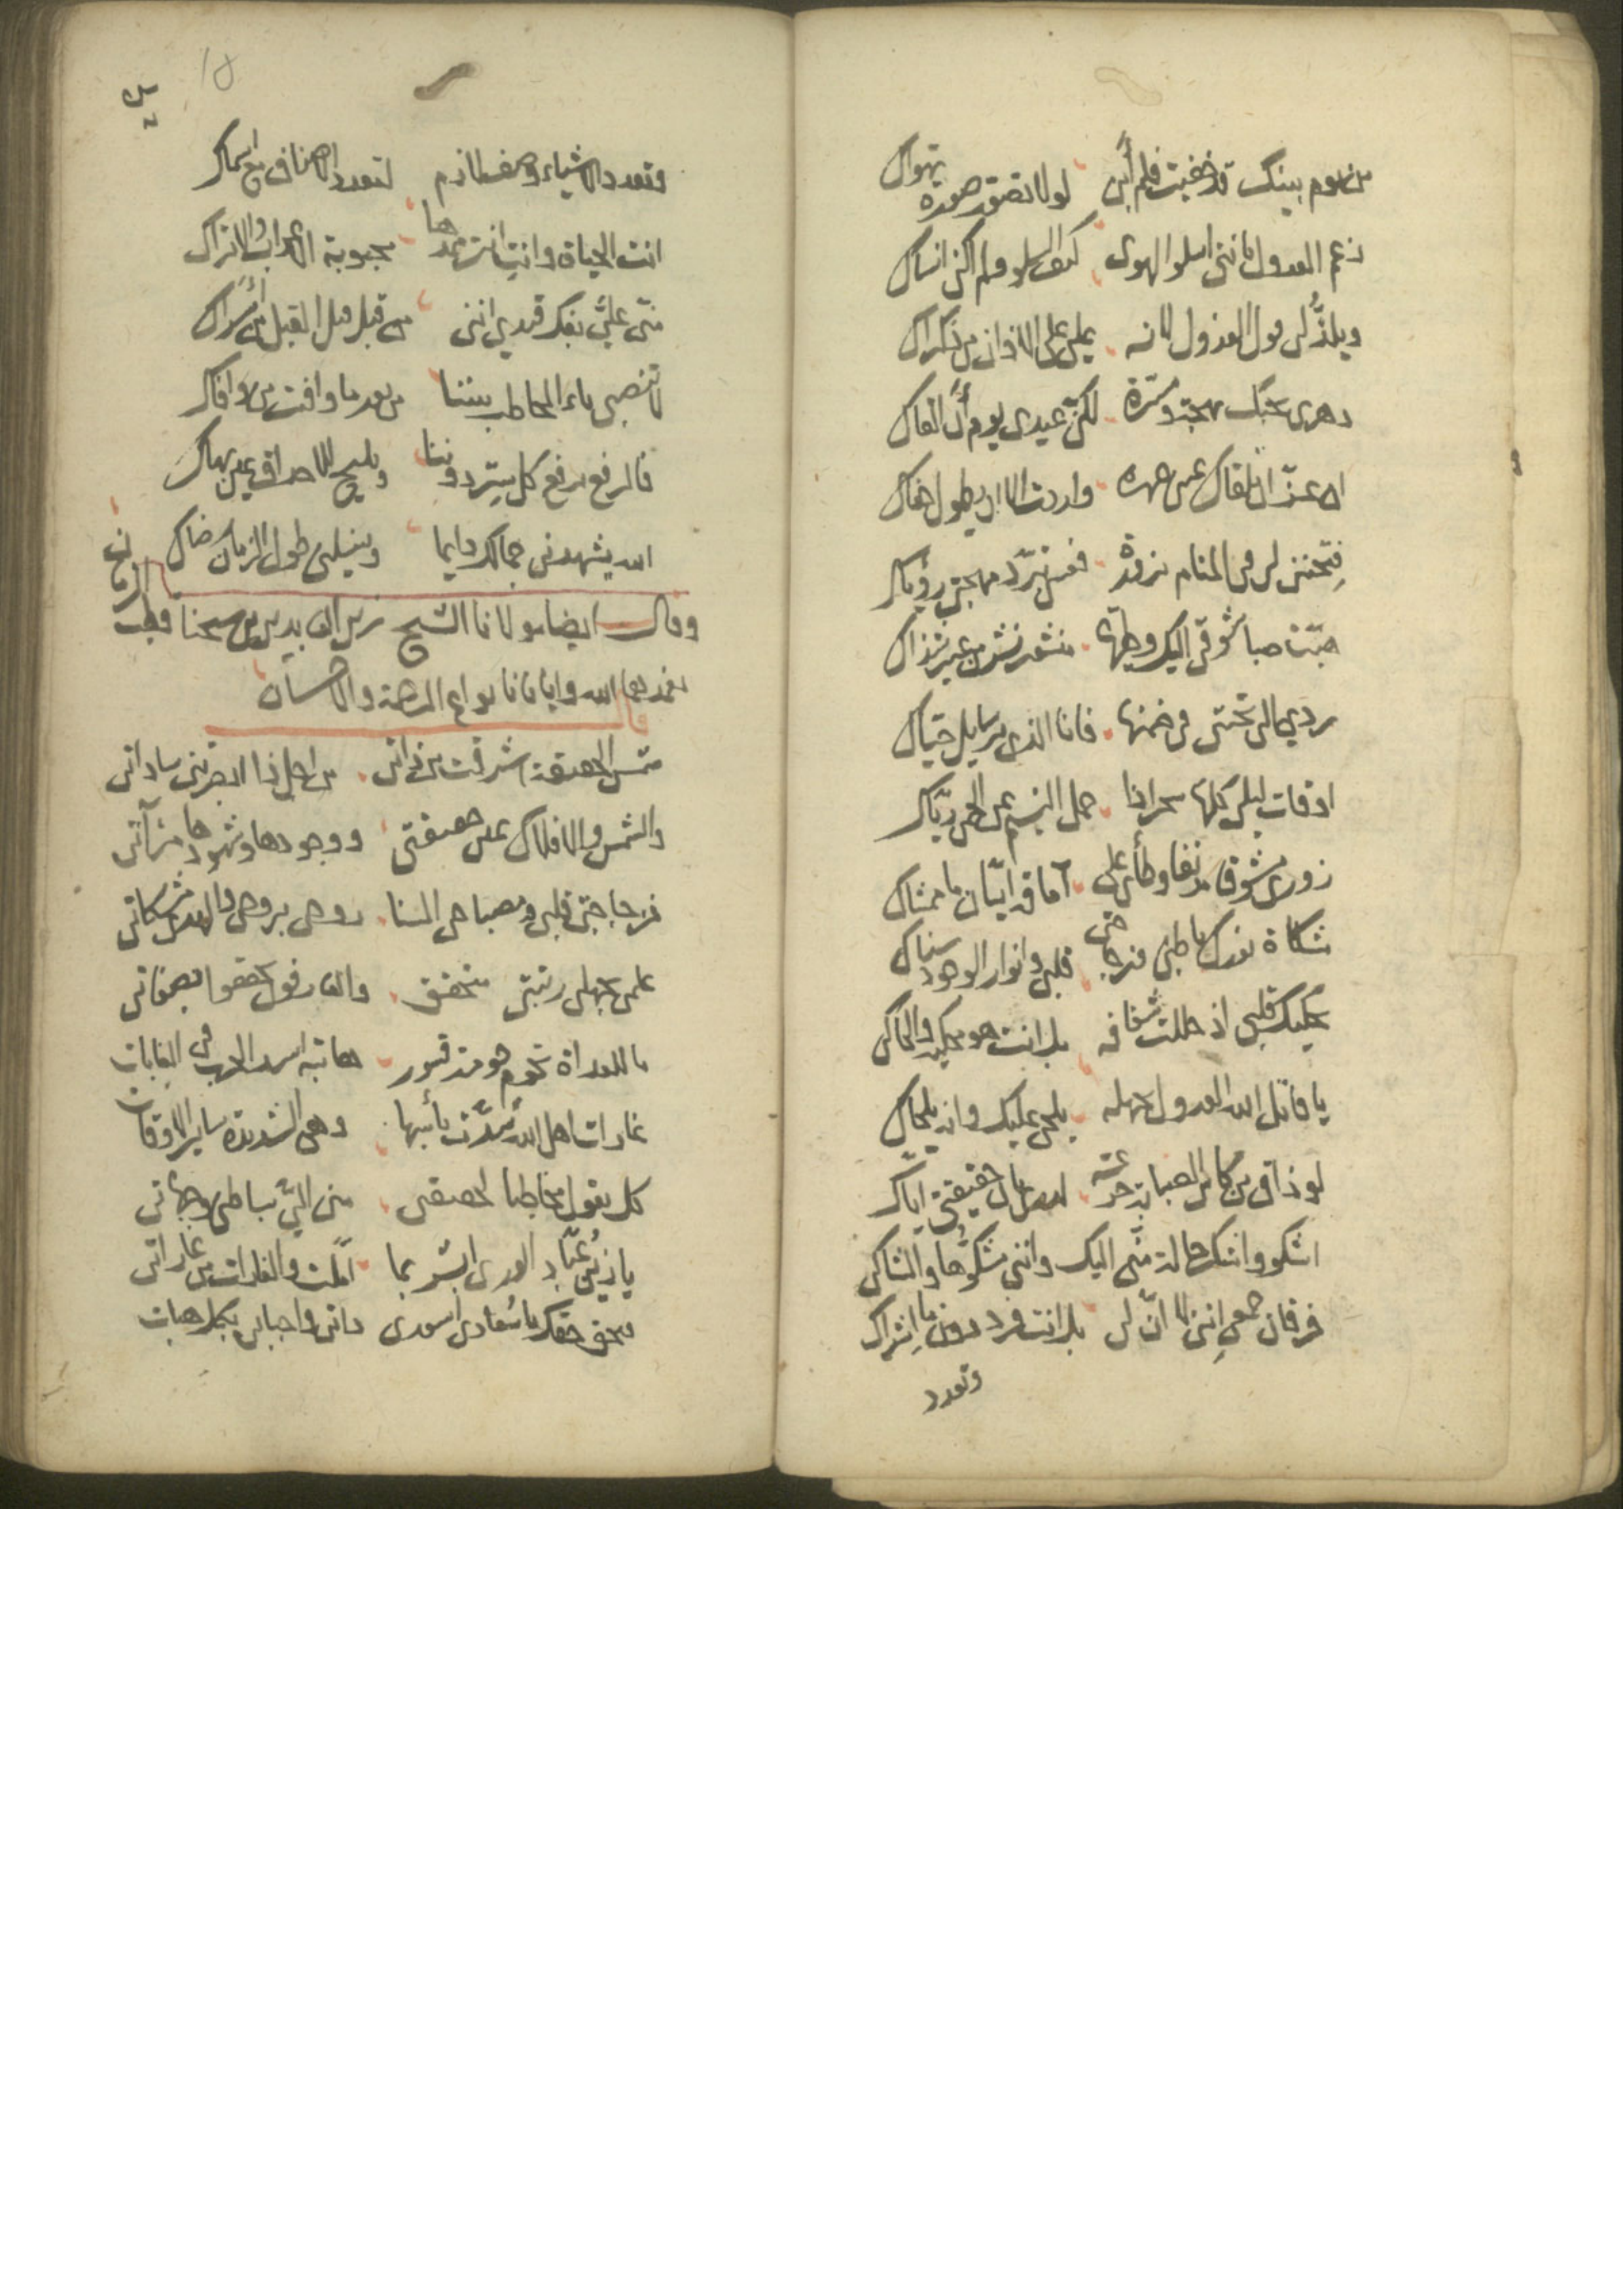 من يوم بينك قد خفيت فلم أبن لولا تصور صورة تهواك
زعم العدول بانني اسلو الهوى كيف السلو ولم اكن انساك
ويلذ لي قول العذول لانه يملي على الاذان من ذكراك
دهري بحبك بهجة ومسرة لكن عيدي يوم أن القاك
ان عز ان القاك عن جهرة واردت الا ان يطول جفاك
فتحنني لي في المنام بزورة فعسى تبرد مهجتي رؤياك
هبت صبا شوقي اليك وطيها منشور نشر من عبير شذاك
ردي الي تحيتي في ضمنها فانا الذي برسايل حياك
اوقات ليلي كلها سحر اذا حمل النسيم عن الحمى رياك
زوري مشوقا مدنفا وطأي على آماقه ايان ما ممشاك
مشكاة نورك باطني فزجاجتي قلبي وانوار الوجود سناك
يحكيك قلبي اذ حللت شغافه بل انت هو محكيه والحاكي
يا قاتل الله العدول بجهله يلحى عليك وانه يلحاك
لو ذاق من كاس الصبابة جرعة
اشكو واشكر حالة مني اليك وانني مشكوها والشاكي
فرقان جمعي انني لا ان لي بل انت فرد دون ما اشراك
وتعدد
وتعدد الاشياء وصف لازم لتعدد الاصناف من اسماك
انت الحياة وانت انت ممدها محبوبة الاعراب والاتراك
مني علي بفك قيدي انني من قبل قبل القبل من أسراك
لا تنصبي ياء المخاطب بيننا من بعد ما وافت من لاوافاك
فالرفع يرفع كل ستر دوننا ويليح للاحداق عين بهاك
الله يشهدني جمالك دايما وينيلني طول الزمان رضاك
وقال ايضا مولانا الشيخ زين العابدين بن شيخنا قطب الزمان
تغمدهما الله وايانا بانواع الرحمة والاحسان
شمس الحقيقة اشرقت من ذاتي من اجل ذا ابصرتني ساداتي
والشمس والافلاك عين حقيقتي ووجودها وشهودها مرآتي
فزجاجتي قلبي ومصباحي السنا روحي بروحي والهدى مشكاتي
علمي بجهلي رتبتي متحقق والعارفون تحققوا بصفاتي
ما للعداة تحوم حومة قسور هابته اسد الحرب في الغابات
غارات اهل الله شدت بأسها وهي الشديدة ساير الاوقات
كل يقول مخاطبا لحقيقتي مني الي بباطن وجهاتي
يا زين عباد الورى ابشر بما املت والغارات من غاراتي
وبحق حقك يا سعادي اسعدي ذاتي واحبابي بكل هبات